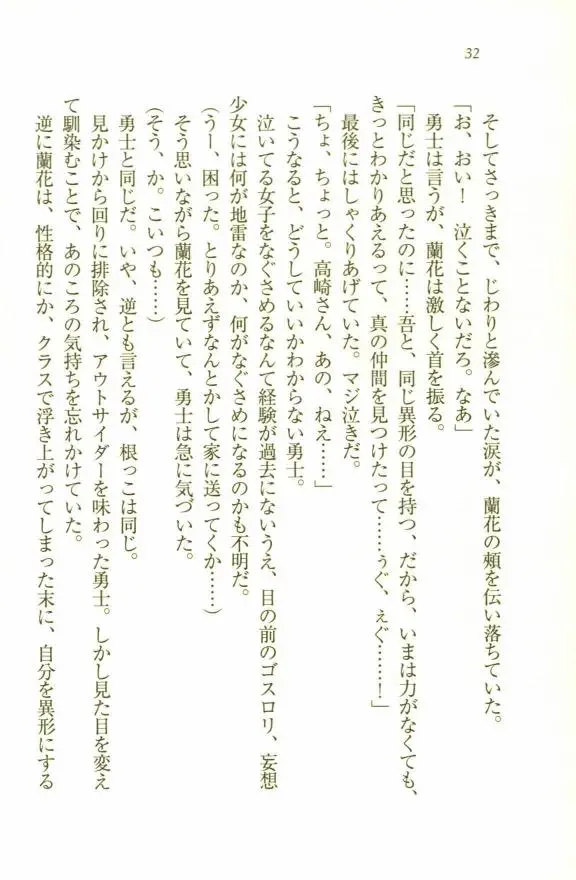 32
そしてさっきまで、じわりと滲んでいた涙が、蘭花の頰を伝い落ちていた。
「お、おい！　泣くことないだろ。なあ」
勇士は言うが、蘭花は激しく首を振る。
「同じだと思ったのに……吾と、同じ異形の目を持つ、だから、いまは力がなくても、
きっとわかりあえるって、真の仲間を見つけたって……ぅぐ、ぇぐ……！」
最後にはしゃくりあげていた。マジ泣きだ。
「ちょ、ちょっと。高崎さん、あの、ねえ……」
こうなると、どうしていいかわからない勇士。
泣いてる女子をなぐさめるなんて経験が過去にないうえ、目の前のゴスロリ、妄想
少女には何が地雷なのか、何がなぐさめになるのかも不明だ。
（うー、困った。とりあえずなんとかして家に送ってくか……）
そう思いながら蘭花を見ていて、勇士は急に気づいた。
（そう、か。こいつも……）
勇士と同じだ。いや、逆とも言えるが、根っこは同じ。
見かけから回りに排除され、アウトサイダーを味わった勇士。しかし見た目を変え
て馴染むことで、あのころの気持ちを忘れかけていた。
逆に蘭花は、性格的にか、クラスで浮き上がってしまった末に、自分を異形にする